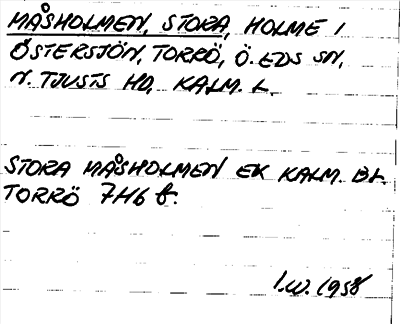 MÅSHOLMEN, STORA, HOLME I
ÖSTERSJÖN, TORRÖ, Ö. EDS SN,
N. TJUSTS HD, KALM. L.
STORA MÅSHOLMEN EK KALM. BL.
TORRÖ 7H6 f.
I.W. 1958